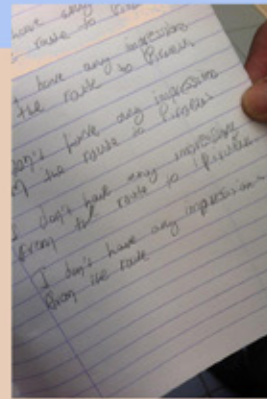 have any
route to
have any impressions
the route to Piraeus
don't have any impressions
the route to Piraeus
I don't have any impressions
from the route to Piraeus
I don't have any impressions
from the route